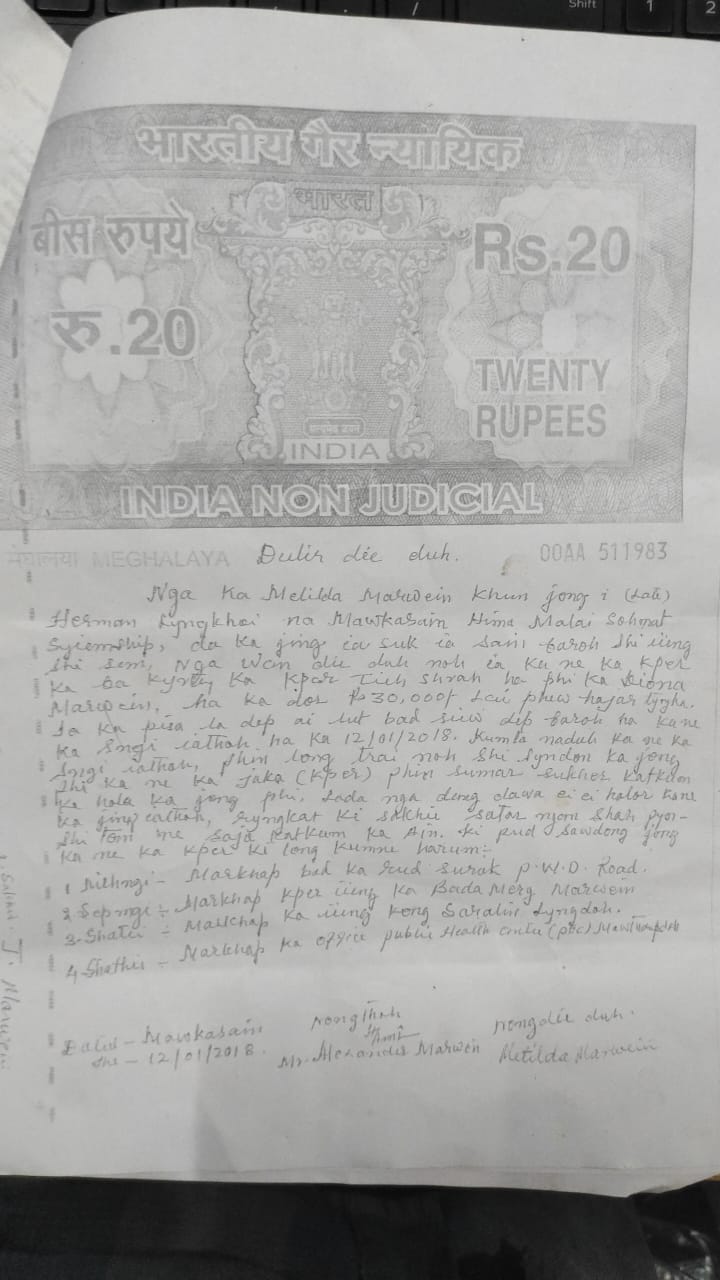 Shift
1
2
भारतीय गैर न्यायिक
भारत
बीस रुपये
Rs.20
रु.20
TWENTY
RUPEES
सत्यमेव जयते
INDIA
INDIA NON JUDICIAL
मेघालया MEGHALAYA Dulir die duh. 00AA 511983
Nga Ka Melilda Marwein Khun jong i (Late)
Herman Lyngkhoi na Mawkasain Hima Malai Sohmat
Syiemship, da ka jing ia suk ia sani baroh shi iing
shi sem, Nga wan die duh noh ia Ka ne ka Kper
Ka ba kyrteng Ka Kper Tieh shrah ha phi Ka Diona
Marwein, ha ka dor Rs 30,000/- Lai phew hajar tyngka.
Ia ka pisa la dep ai lut bad siew dep baroh ha kane
ka sngi iathoh ha ka 12/01/2018. Kumta naduh ka ne ka
sngi iathoh, phin long trai noh shi syndon ka jong
shi ka ne ka jaka (Kper) phin sumar sukher katkum
ka hola ka jong phi. Lada nga dang dawa ei ei halor kane
ka jing iathoh, ryngkat ki sakhi satar ngon shah pyn-
shi tom ne saja katkum ka Ain. ki pud sawdong jong
ka ne ka kper ki long kumne harum:-
1 Rithngi - Markhap bad ka rud surok P.W.D. Road.
2 Sepngi :- Markhap kper iing ka Bada Merg Marwein
3. Shatei :- Markhap ka iing kong Saralin Lyngdoh.
4. Shathie - Markhap ka office public Health Centre (PHC)
Dated - Mawkasain nongthoh nongdie duh.
the - 12/01/2018. Mr. Alexander Marwein Melilda Marwein
J. Marwein